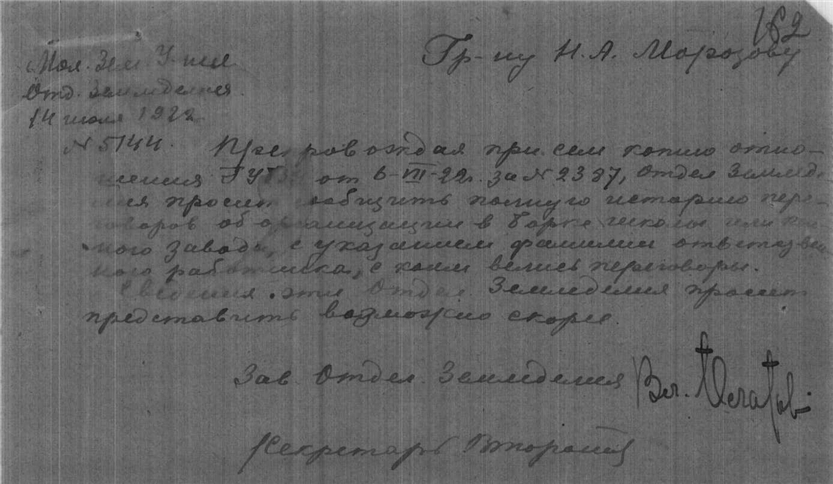 162
Гр-ну Н. А. Морозову
Мол. Зем. Упр.
Отд. Земледелия.
14 июля 1922
№ 5144. Препровождая при сем копию отно-
шения от 6-VII-22г. за № 2337, Отдел Землед-
просит сообщить полную историю пере-
говоров об организации в Борке школы или
ного завода, с указанием фамилии ответствен-
ного работника, с коим велись переговоры.
Сведения эти Отдел Земледелия просит
представить возможно скорее.
Зав. Отдел. Земледелия Вл.
Секретарь